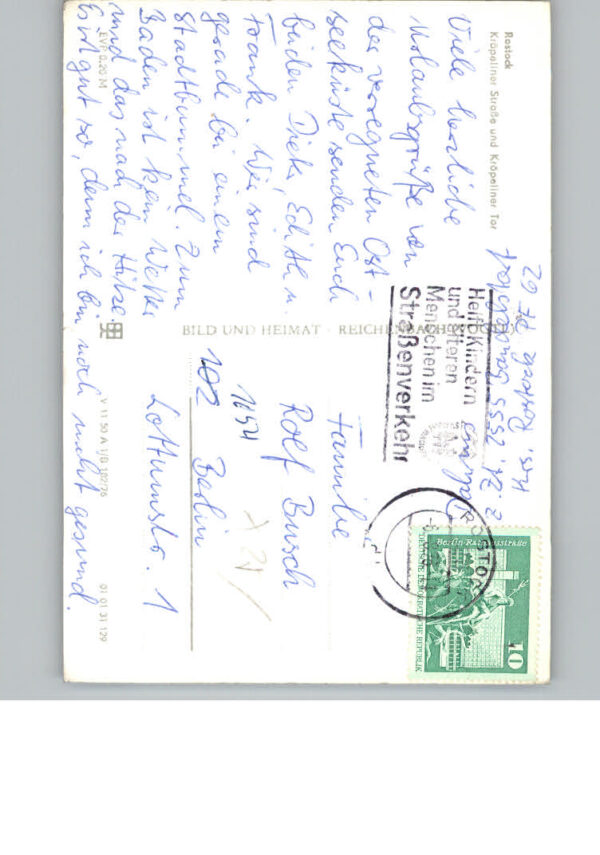 Rostock
Kröpeliner Straße und Kröpeliner Tor
Viele herzliche
Urlaubsgrüße von
der verregneten Ost-
seeküste senden Euch
beiden Dieter, Edith u.
Frank. Wir sind
gerade bei einem
Stadtbummel. Zum
Baden ist kein Wetter
und das nach der Hitze.
gut so, denn ich bin noch nicht gesund.
EVP 0,20 M
BILD UND HEIMAT · REICHENBACH (VOGTL)
V 11 50 A 1/B 182/76
01 01 31 129
z. Zt. 2555
Helft Kindern
und älteren
Menschen im
Straßenverkehr
ROSTOCK
Berlin-Rathausstraße
DEUTSCHE DEMOKRATISCHE REPUBLIK
10
Familie
Rolf Busch
1054
102 Berlin
Lottumstr. 1